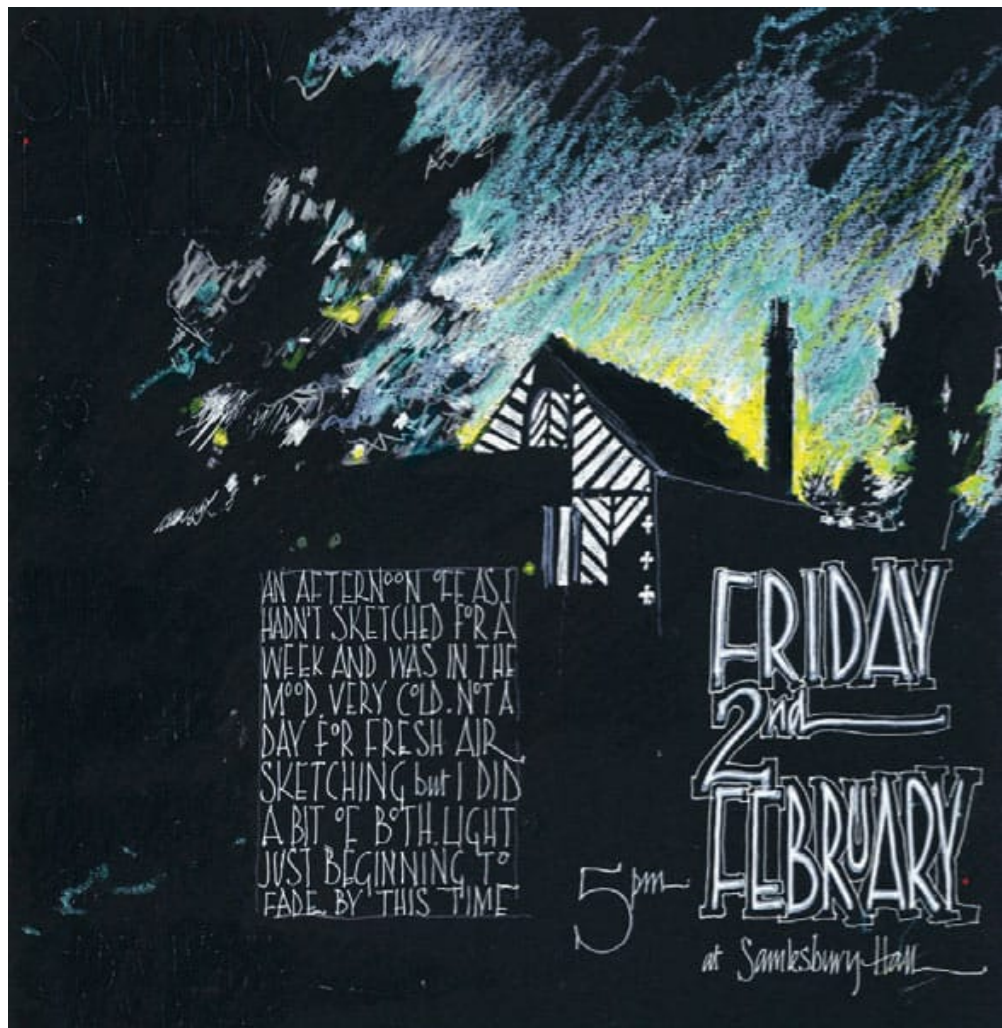 SAMLESBURY
AN AFTERNOON OFF AS I
HADN'T SKETCHED FOR A
WEEK AND WAS IN THE
MOOD. VERY COLD. NOT A
DAY FOR FRESH AIR
SKETCHING but I DID
A BIT OF BOTH. LIGHT
JUST BEGINNING TO
FADE BY THIS TIME
FRIDAY
2nd
FEBRUARY
5pm
at Samlesbury Hall